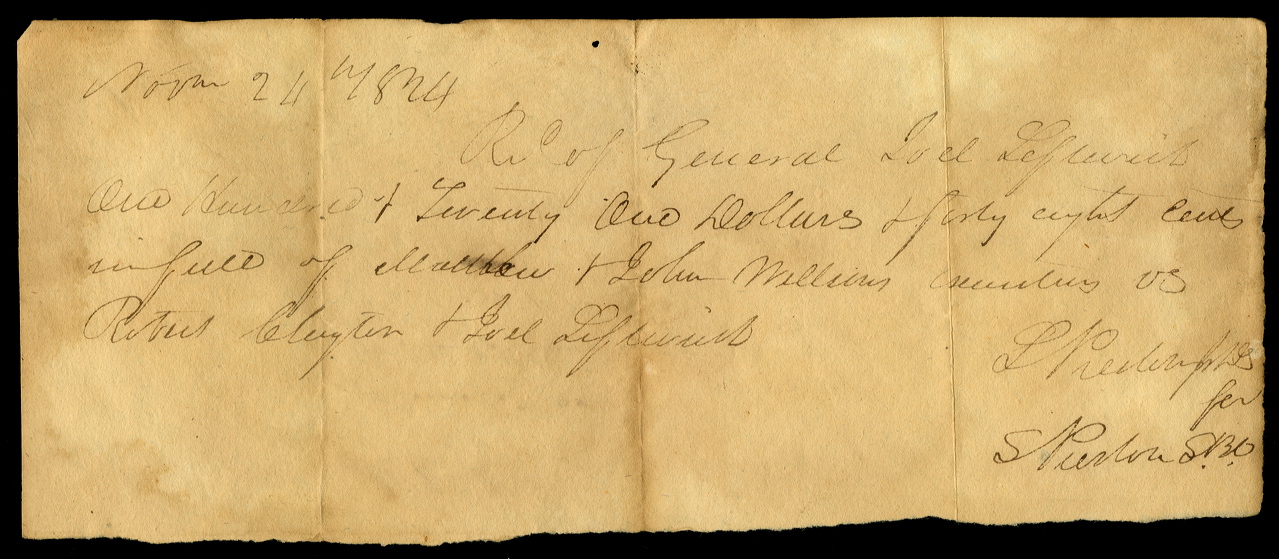 Novm 24th 1824
Recd of General Joel Leftwich
One Hundred & Twenty One Dollars & forty eight cents
in full of Matthew & John Williams executions vs
Robert Clayton & Joel Leftwich
for
S Preston S.B.C